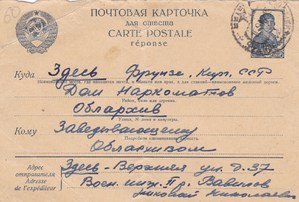 ПОЧТОВАЯ КАРТОЧКА
для ответа
CARTE POSTALE
réponse
Куда Здесь Фрунзе, Кирг. ССР
Дом Наркоматов
Облархив
Кому Заведывающему
Облархивом
Адрес
отправителя
Adresse
de l'expéditeur
Здесь - Верхняя ул. д. 37
Воен. инж. Вавилов
Николай Николаевич